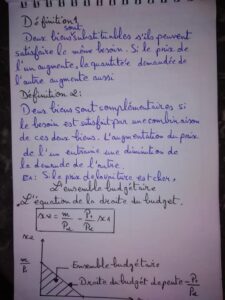 Définition 1
sont
Deux biens substituables s'ils peuvent
satisfaire le même besoin. Si le prix de
l'un augmente, la quantité demandée de
l'autre augmente aussi
Définition 2:
Deux biens sont complémentaires si
le besoin est satisfait par une combinaison
de ces deux biens. L'augmentation du prix
de l'un entraîne une diminution de
la demande de l'autre.
Ex: Si le prix de la voiture est cher,
L'ensemble budgétaire
L'équation de la droite du budget.
x2 = m/P2 - P1/P2 x1
x2
Ensemble budgétaire
Droite du budget de pente = -P1/P2